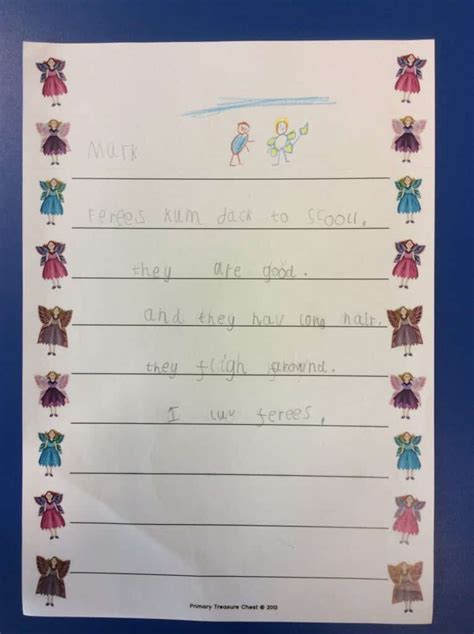 Mark
Ferees kum dack to scooll.
they are good.
and they hav long hair.
they fligh arownd.
I luv ferees.
Primary Treasure Chest © 2013